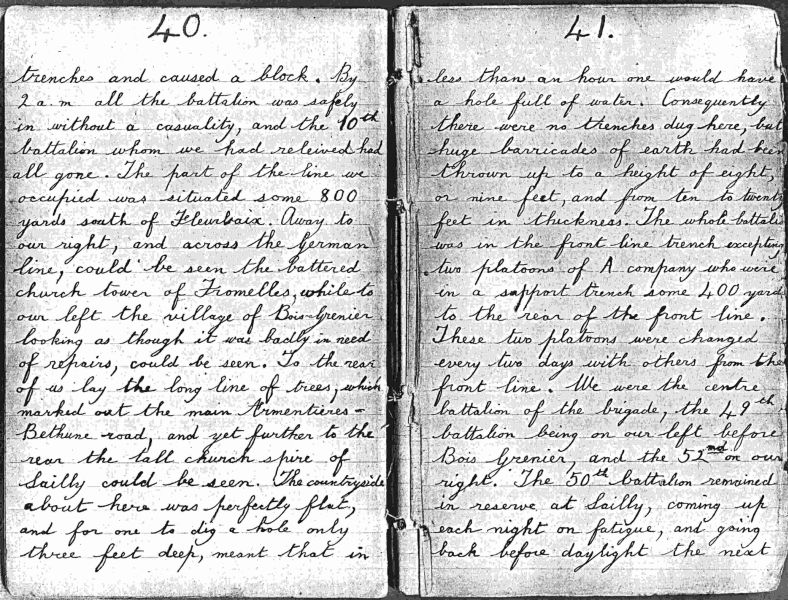 40.
trenches and caused a block. By
2 a.m all the battalion was safely
in without a casuality, and the 10th
battalion whom we had releived had
all gone. The part of the line we
occupied was situated some 800
yards south of Fleurbaix. Away to
our right, and across the German
line, could be seen the battered
church tower of Fromelles, while to
our left the village of Bois-Grenier
looking as though it was badly in need
of repairs, could be seen. To the rear
of us lay the long line of trees, which
marked out the main Armentières-
Bethune road, and yet further to the
rear the tall church spire of
Sailly could be seen. The countryside
about here was perfectly flat,
and for one to dig a hole only
three feet deep, meant that in
41.
less than an hour one would have
a hole full of water. Consequently
there were no trenches dug here, but
huge barricades of earth had been
thrown up to a height of eight,
or nine feet, and from ten to twenty
feet in thickness. The whole battali
was in the front line trench excepting
two platoons of A company who were
in a support trench some 400 yard
to the rear of the front line.
These two platoons were changed
every two days with others from the
front line. We were the centre
battalion of the brigade, the 49th
battalion being on our left before
Bois Grenier, and the 52nd on our
right. The 50th battalion remained
in reserve at Sailly, coming up
each night on fatigue, and going
back before daylight the next